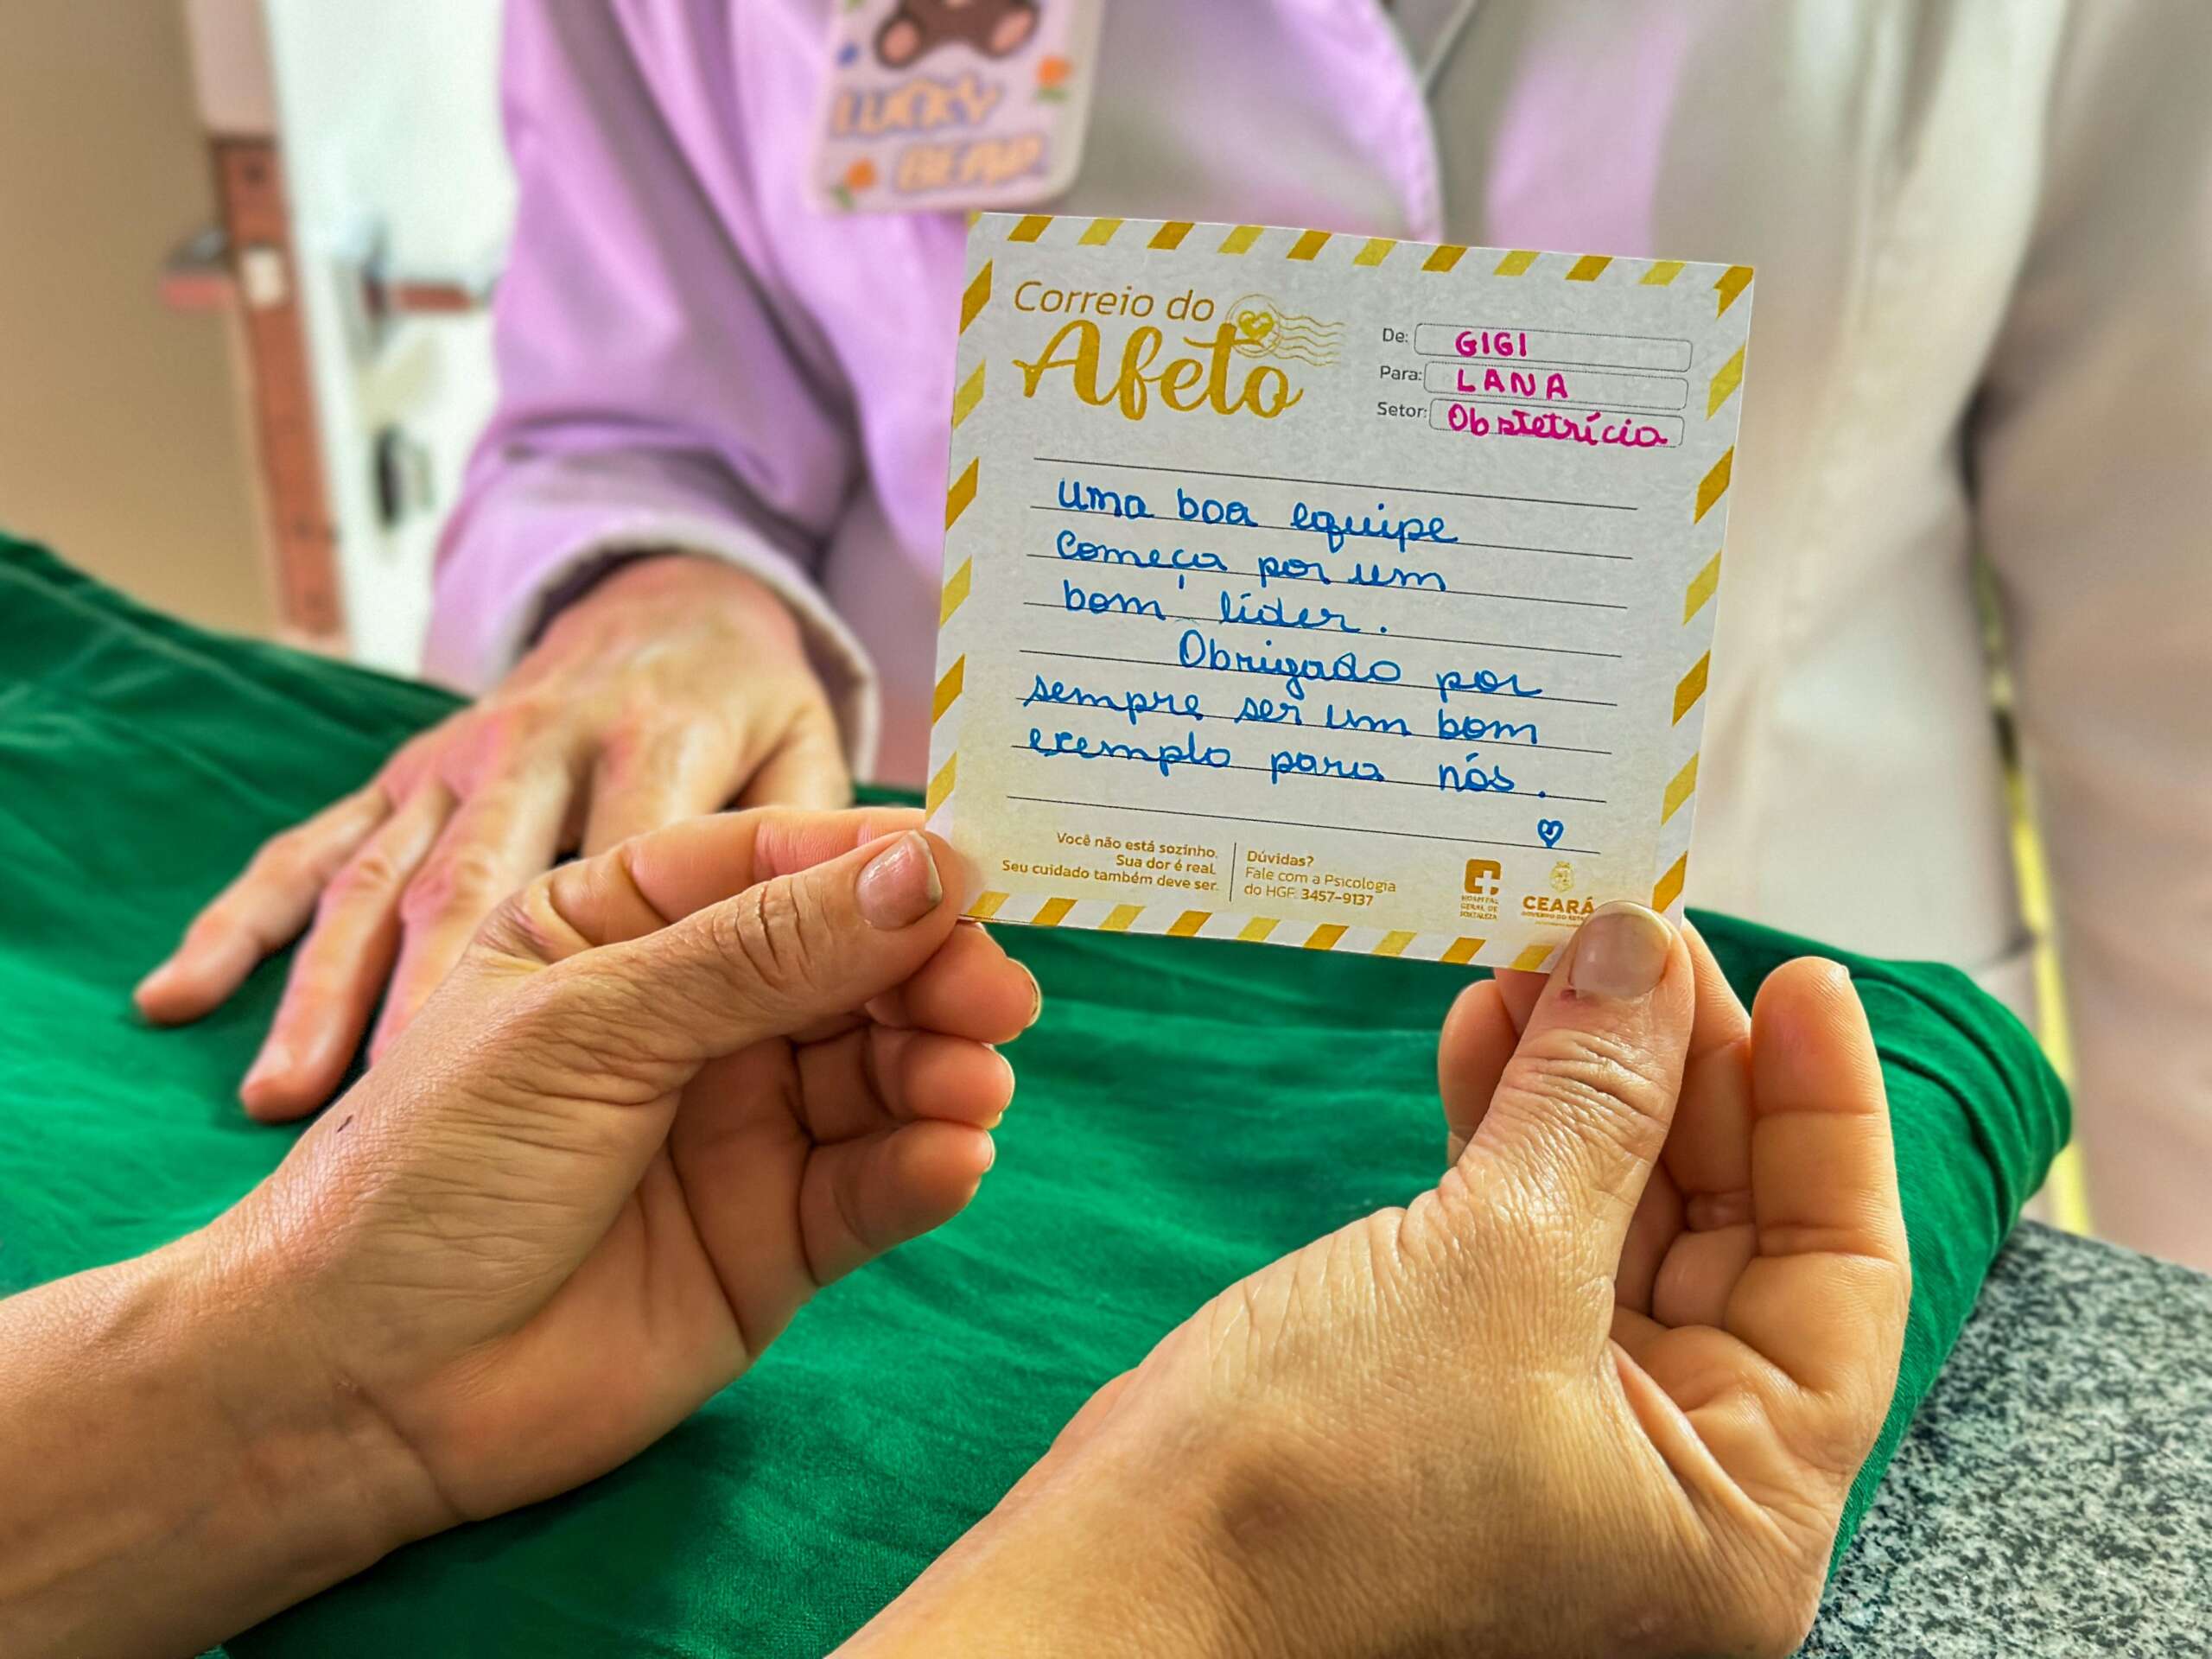 LUCKY
BEAR
Correio do
Afeto
De: GIGI
Para: LANA
Setor: Obstetrícia
Uma boa equipe
Começa por um
bom líder.
Obrigado por
sempre ser um bom
exemplo para nós.
Você não está sozinho.
Sua dor é real.
Seu cuidado também deve ser.
Dúvidas?
Fale com a Psicologia
do HGF: 3457-9137
HOSPITAL
GERAL DE
FORTALEZA
CEARÁ
GOVERNO DO ESTADO